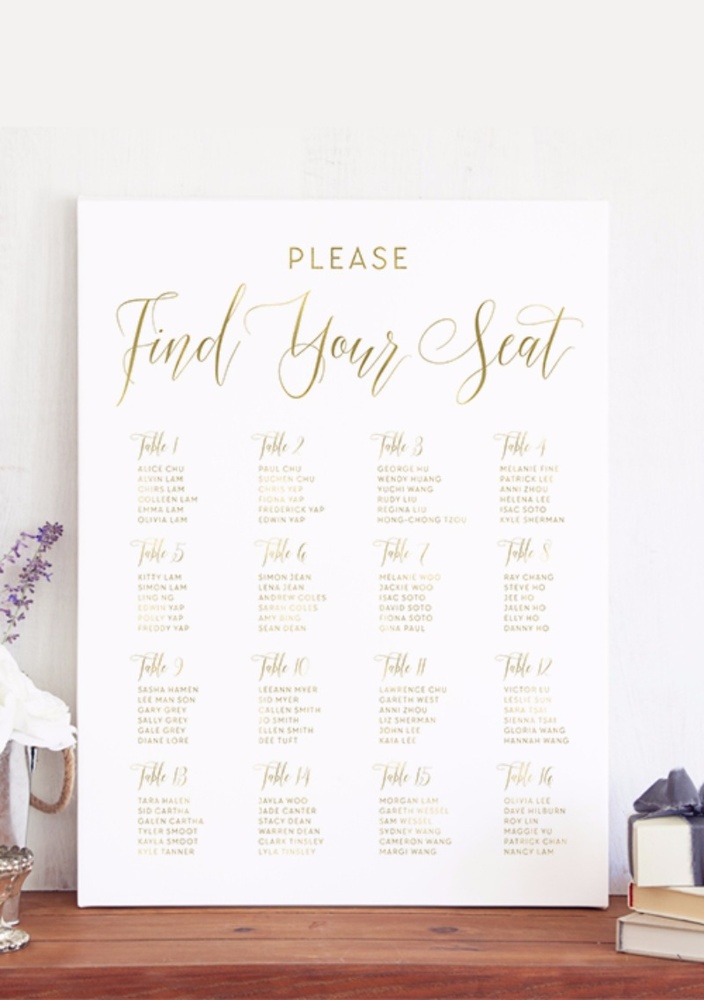 PLEASE
Find Your Seat
Table 1
ALICE CHU
ALVIN LAM
CHIRS LAM
COLLEEN LAM
EMMA LAM
OLIVIA LAM
Table 2
PAUL CHU
SUCHEN CHU
CHRIS YAP
FIONA YAP
FREDERICK YAP
EDWIN YAP
Table 3
GEORGE HU
WENDY HUANG
YUCHI WANG
RUDY LIU
REGINA LIU
HONG-CHONG TZOU
Table 4
MELANIE FINE
PATRICK LEE
ANNI ZHOU
HELENA LEE
ISAC SOTO
KYLE SHERMAN
Table 5
KITTY LAM
SIMON LAM
LING NG
EDWIN YAP
POLLY YAP
FREDDY YAP
Table 6
SIMON JEAN
LENA JEAN
ANDREW COLES
SARAH COLES
AMY BING
SEAN DEAN
Table 7
MELANIE WOO
JACKIE WOO
ISAC SOTO
DAVID SOTO
FIONA SOTO
GINA PAUL
Table 8
RAY CHANG
STEVE HO
JEE HO
JALEN HO
ELLY HO
DANNY HO
Table 9
SASHA HAMEN
LEE MAN SON
GARY GREY
SALLY GREY
GALE GREY
DIANE LORE
Table 10
LEEANN MYER
SID MYER
CALLEN SMITH
JO SMITH
ELLEN SMITH
DEE TUFT
Table 11
LAWRENCE CHU
GARETH WEST
ANNI ZHOU
LIZ SHERMAN
JOHN LEE
KAIA LEE
Table 12
VICTOR LU
LESLIE SUN
SARA TSAI
SIENNA TSAI
GLORIA WANG
HANNAH WANG
Table 13
TARA HALEN
SID CARTHA
GALEN CARTHA
TYLER SMOOT
KAYLA SMOOT
KYLE TANNER
Table 14
JAYLA WOO
JADE CANTER
STACY DEAN
WARREN DEAN
CLARK TINSLEY
LYLA TINSLEY
Table 15
MORGAN LAM
GARETH WESSEL
SAM WESSEL
SYDNEY WANG
CAMERON WANG
MARGI WANG
Table 16
OLIVIA LEE
DAVE WILBURN
ROY LIN
MAGGIE YU
PATRICK CHAN
NANCY LAM